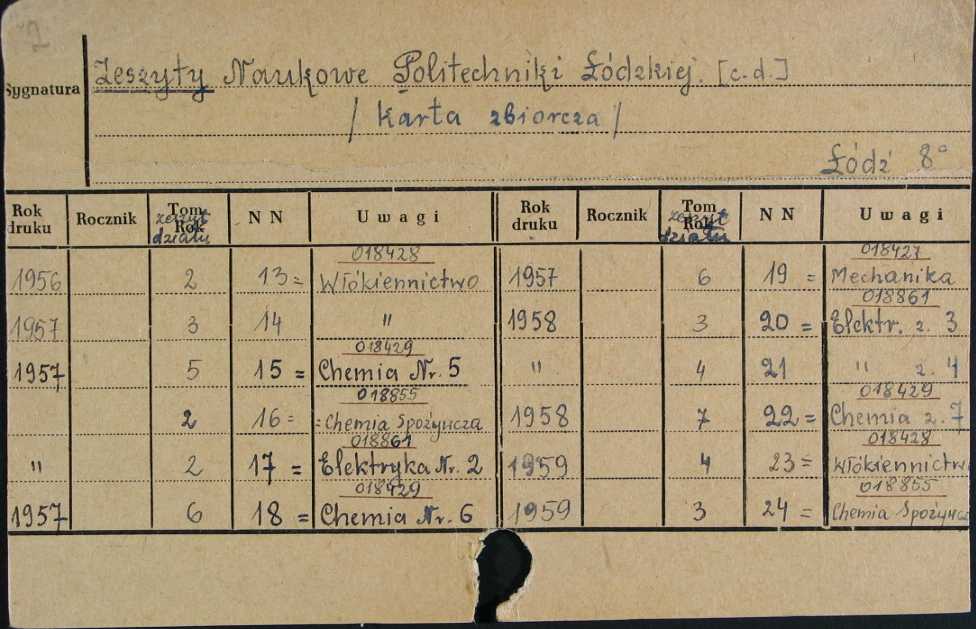 2
Sygnatura
Zeszyty Naukowe Politechniki Łódzkiej. [c.d.]
/ Karta zbiorcza /
Łódź 8°
Rok druku Rocznik Tom Rok zeszyt działu N N Uwagi
018428
1956 2 13 = Włókiennictwo
1957 3 14 "
018429
1957 5 15 = Chemia Nr. 5
018855
2 16 = = Chemia Spożywcza
018861
" 2 17 = Elektryka Nr. 2
018429
1957 6 18 = Chemia Nr. 6
Rok druku Rocznik Tom Rok zeszyt działu N N Uwagi
018427
1957 6 19 = Mechanika
018861
1958 3 20 = Elektr. z. 3
" 4 21 " z. 4
018429
1958 7 22 = Chemia z. 7
018428
1959 4 23 = Włókiennictwo
018855
1959 3 24 = Chemia Spożywcz